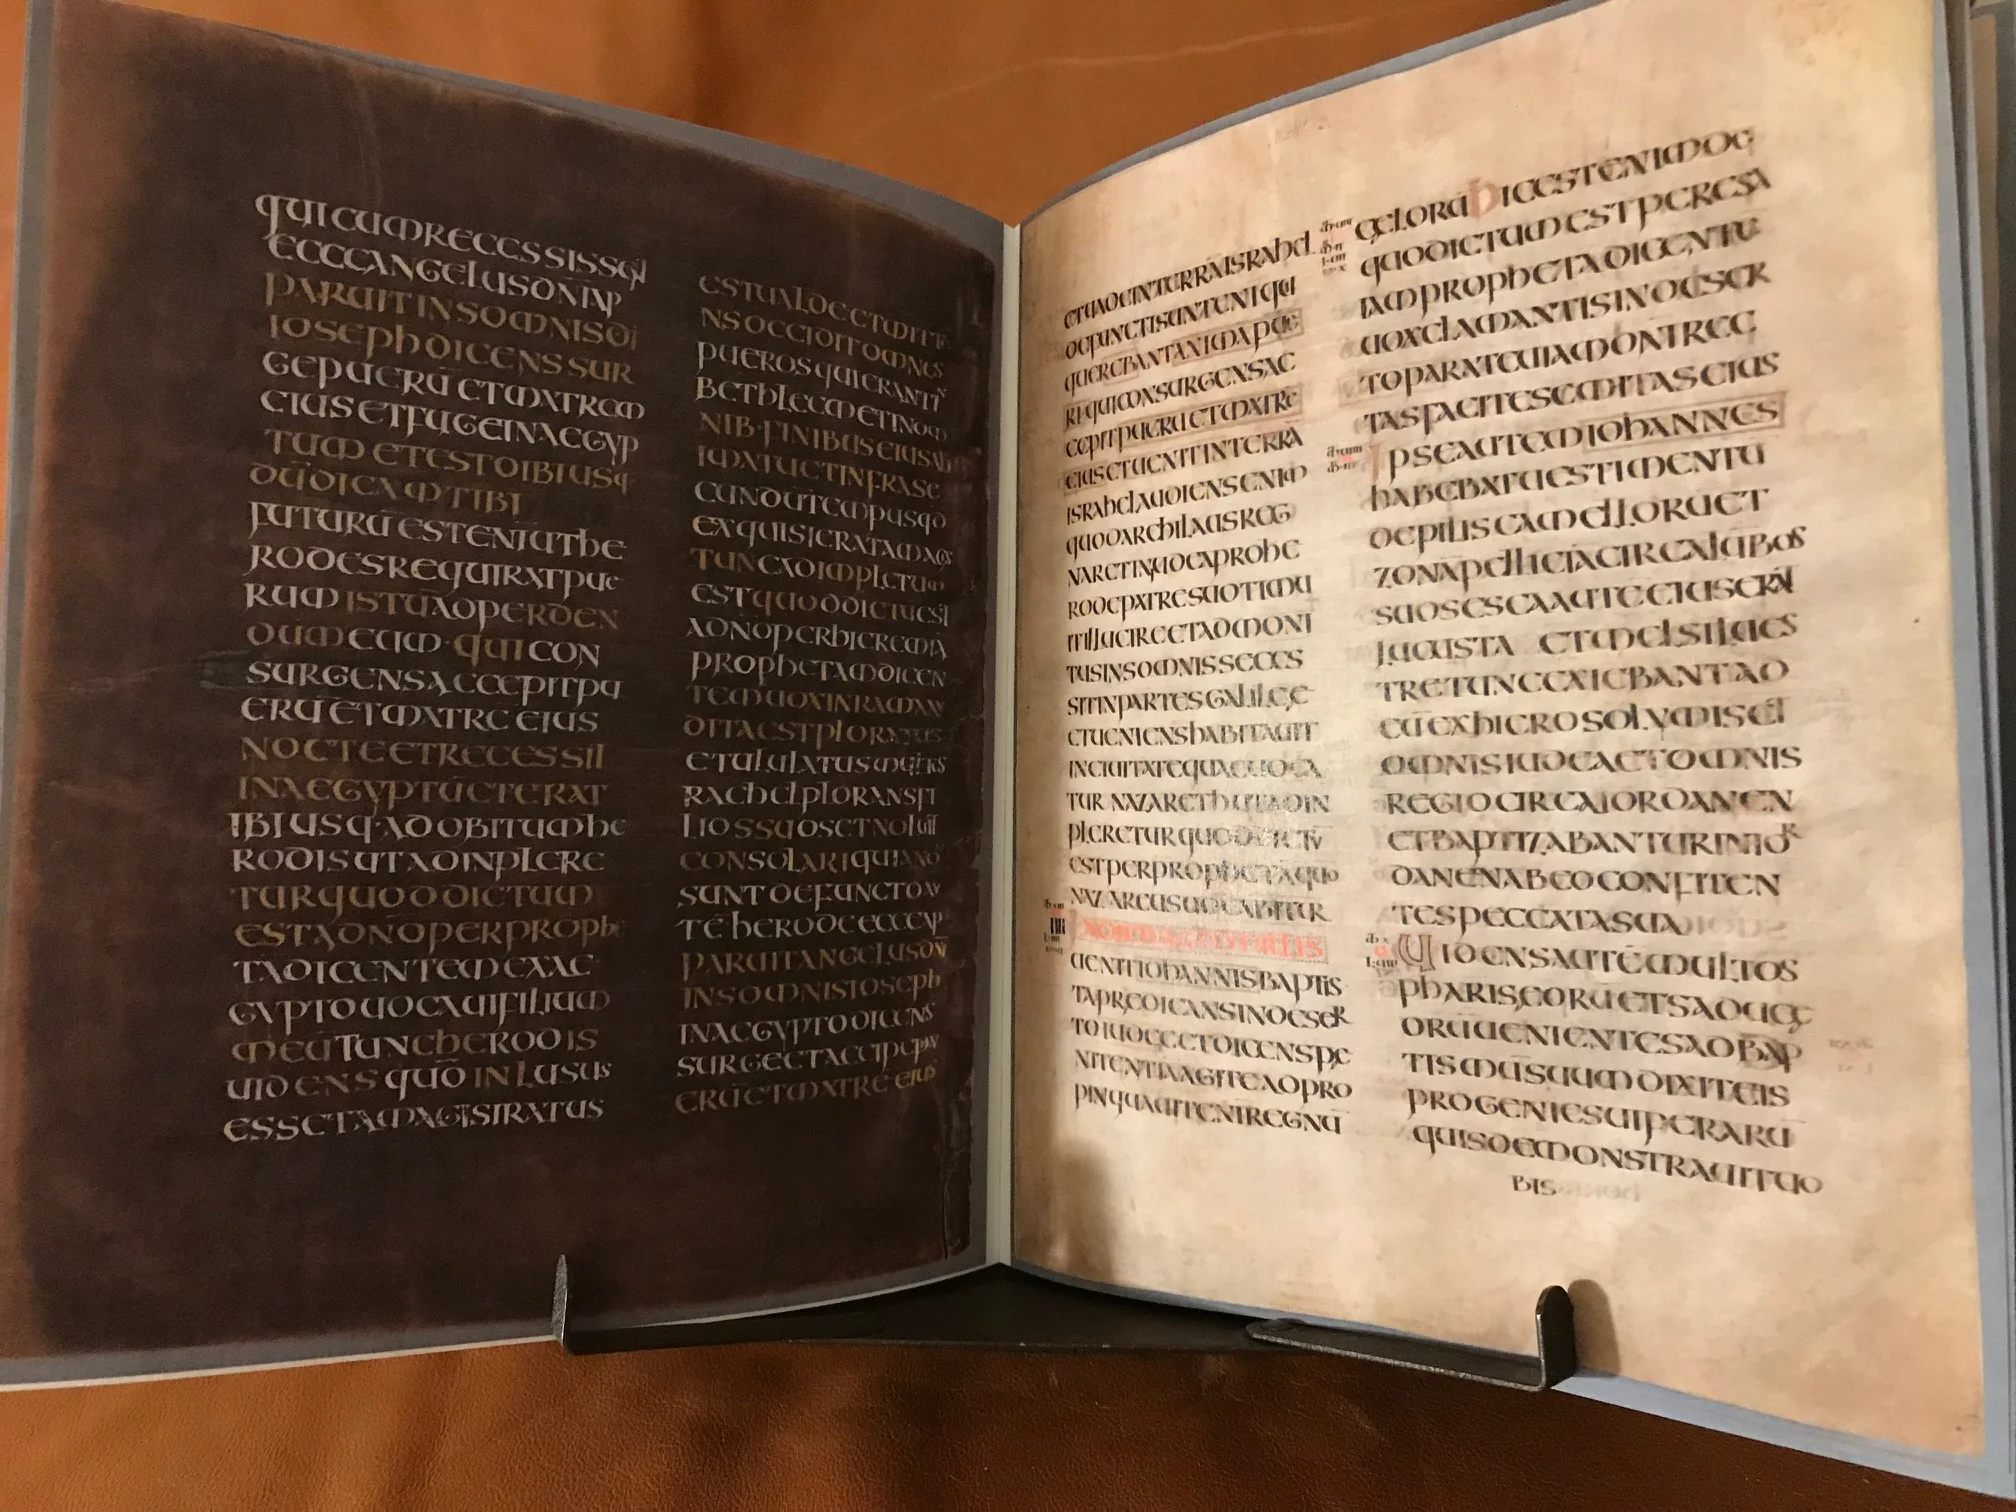 QUI CUM RECESSISSEN
ECCE ANGELUS DNI AP
PARUIT IN SOMNIS DI
IOSEPH DICENS SUR
GE PUERŪ ET MATREM
EIUS ET FUGE IN AEGYP
TUM ET ESTO IBI USQ
DŪ DICAM TIBI
FUTURŪ EST ENIM UT HE
RODES REQUIRAT PUE
RUM ISTŪ AD PERDEN
DUM EUM · QUI CON
SURGENS ACCEPIT PU
ERŪ ET MATRE EIUS
NOCTE ET RECESSIT
IN AEGYPTŪ ET ERAT
IBI USQ · AD OBITUM HE
RODIS UT ADINPLERE
TUR QUOD DICTUM
EST A DNO PER PROPHE
TA DICENTEM EX AE
GYPTO UOCAUI FILIUM
MEŪ TUNC HERODIS
UIDENS QUO INLUSUS
ESSET A MAGIS IRATUS
EST UALDE ET MITTE
NS OCCIDIT OMNES
PUEROS QUI ERANT IN
BETHLEEM ET IN OM
NIB · FINIBUS EIUS AB
IMATU ET INFRA SE
CUNDU TEMPUS QD
EXQUISIERAT A MAGIS
TUNC ADIMPLETUM
EST QUOD DICTU EST
A DNO PER HIEREMIA
PROPHETAM DICEN
TEM UOX IN RAMA AU
DITA EST PLORATUS
ET ULULATUS MULTUS
RACHEL PLORANS FI
LIOS SUOS ET NOLUIT
CONSOLARI QUIA NO
SUNT DEFUNCTO AU
TĒ HERODE ECCE AP
PARUIT ANGELUS DNI
IN SOMNIS IOSEPH
IN AEGYPTO DICENS
SURGE ET ACCIPE PU
ERŪ ET MATRE EIUS
ET UADE IN TERRA ISRAHEL
DEFUNCTI SUNT ENI QUI
QUEREBANT ANIMA PUE
RI · QUI CONSURGENS AC
CEPIT PUERU ET MATRE
EIUS ET UENIT IN TERRA
ISRAHEL AUDIENS ENIM
QUOD ARCHILAUS REG
NARET IN IUDEA PRO HE
RODE PATRE SUO TIMU
IT ILLUC IRE ET ADMONI
TUS IN SOMNIS SECES
SIT IN PARTES GALILEE
ET UENIENS HABITAUIT
IN CIUITATE QUAE UOCA
TUR NAZARETH UT ADIN
PLERETUR QUOD DICTU
EST PER PROPHETA QUO
NAZAREUS UOCABITUR
IN DIEBUS ILLIS
UENIT IOHANNIS BAPTIS
TA PREDICANS IN DESER
TO IUDEE ET DICENS PE
NITENTIA AGITE ADPRO
PINQUAUIT ENI REGNU
CELORU HIC EST ENIM DE
QUO DICTUM EST PER ESA
IAM PROPHETA DICENTE
UOX CLAMANTIS IN DESER
TO PARATE UIAM DNI REC
TAS FACITE SEMITAS EIUS
IPSE AUTEM IOHANNES
HABEBAT UESTIMENTU
DE PILIS CAMELLORU ET
ZONA PELLICIA CIRCA LUBOS
SUOS ESCA AUTE EIUS ERAT
LUCUSTA ET MEL SILUES
TRE TUNC EXIEBANT AD
EU EX HIEROSOLYMIS ET
OMNIS IUDEA ET OMNIS
REGIO CIRCA IORDANEN
ET BAPTIZABANTUR IN IOR
DANEN AB EO CONFITEN
TES PECCATA SUA
UIDENS AUTĒ MULTOS
PHARISEORŪ ET SADUCE
ORŪ UENIENTES AD BAP
TISMŪ SUUM DIXIT EIS
PROGENIES UIPERARU
QUIS DEMONSTRAUIT UO
BIS